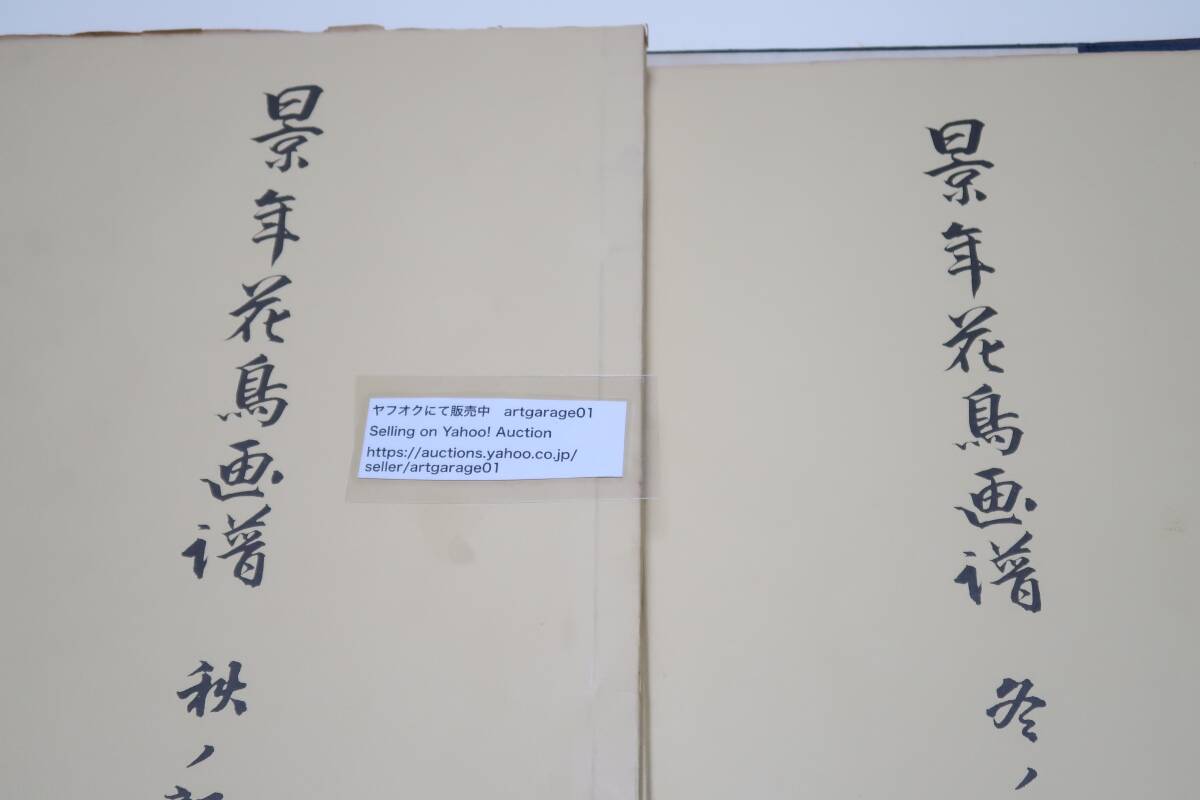 景年花鳥画譜 秋ノ部
ヤフオクにて販売中 artgarage01
Selling on Yahoo! Auction
https://auctions.yahoo.co.jp/
seller/artgarage01
景年花鳥画譜 冬ノ